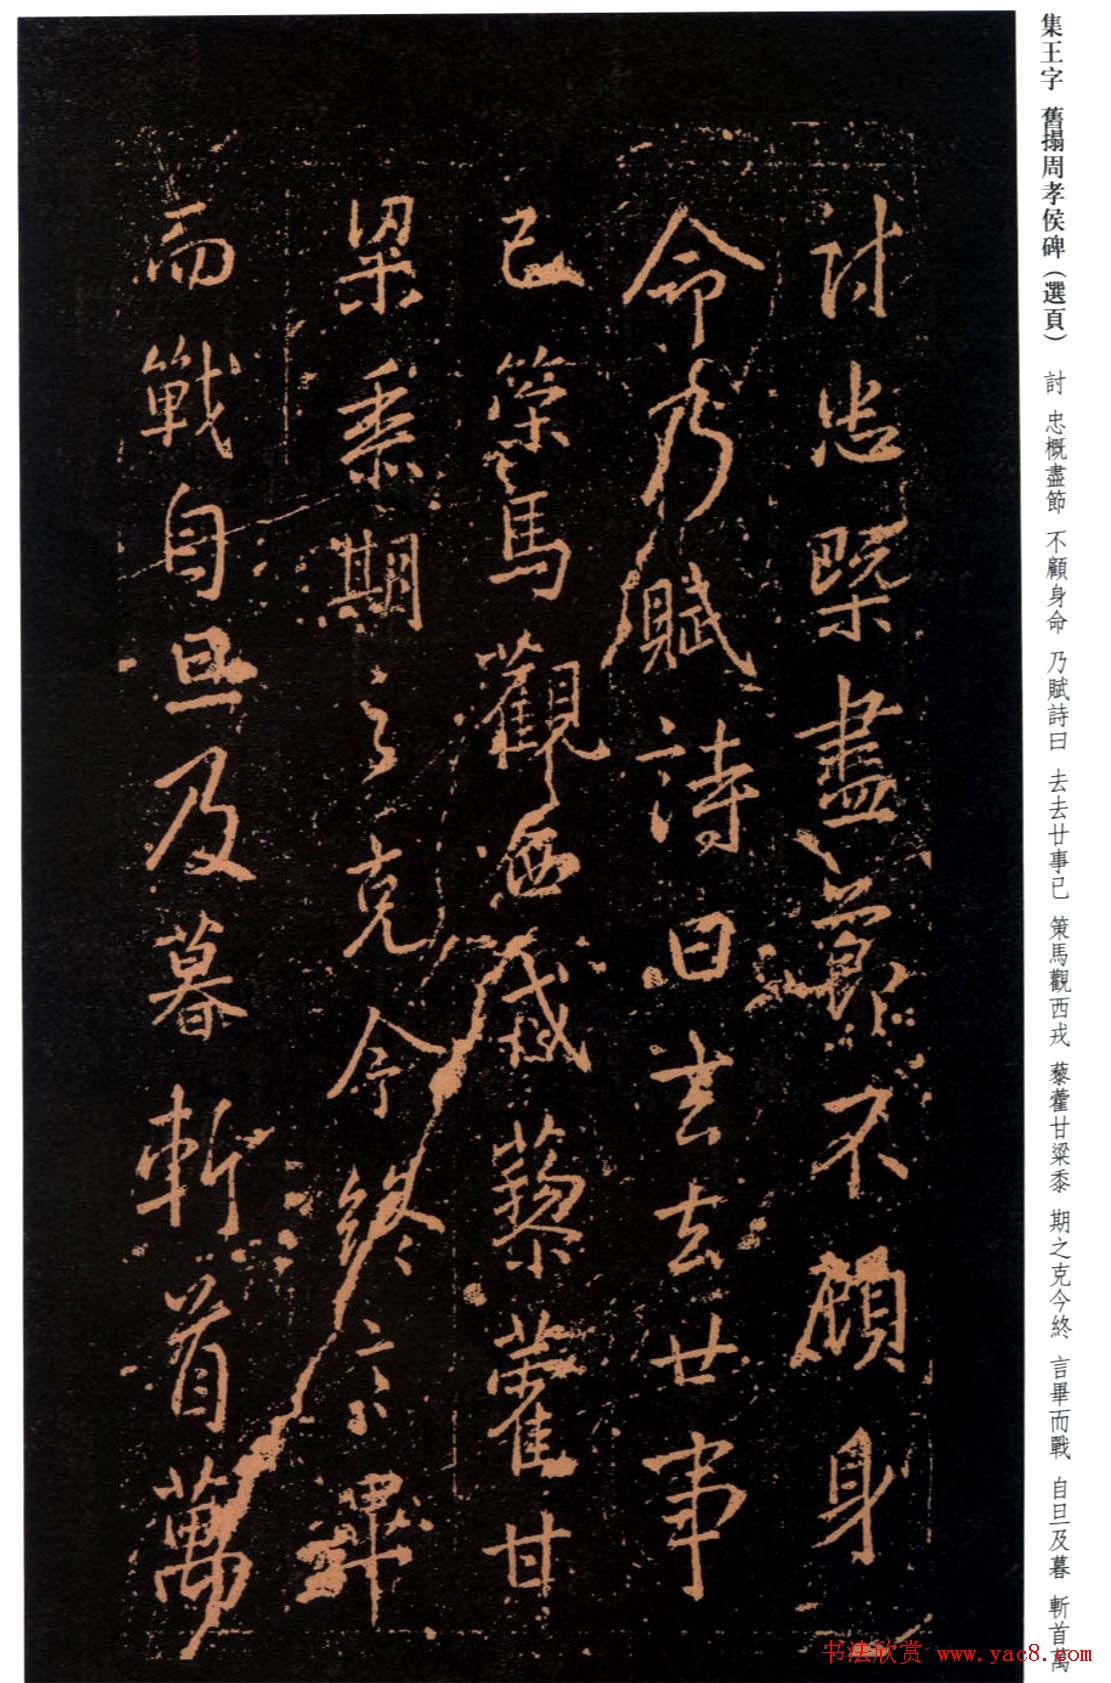 集王字 舊搨周孝侯碑（選頁） 討 忠概盡節 不顧身命 乃賦詩曰 去去廿事已 策馬觀西戎 藜藿甘粱黍 期之克今終 言畢而戰 自旦及暮 斬首萬
討忠概盡節不顧身
命乃賦詩曰去去廿事
已策馬觀西戎藜藿甘
梁黍期之克今終言畢
而戰自旦及暮斬首萬
书法欣赏 www.yac8.com